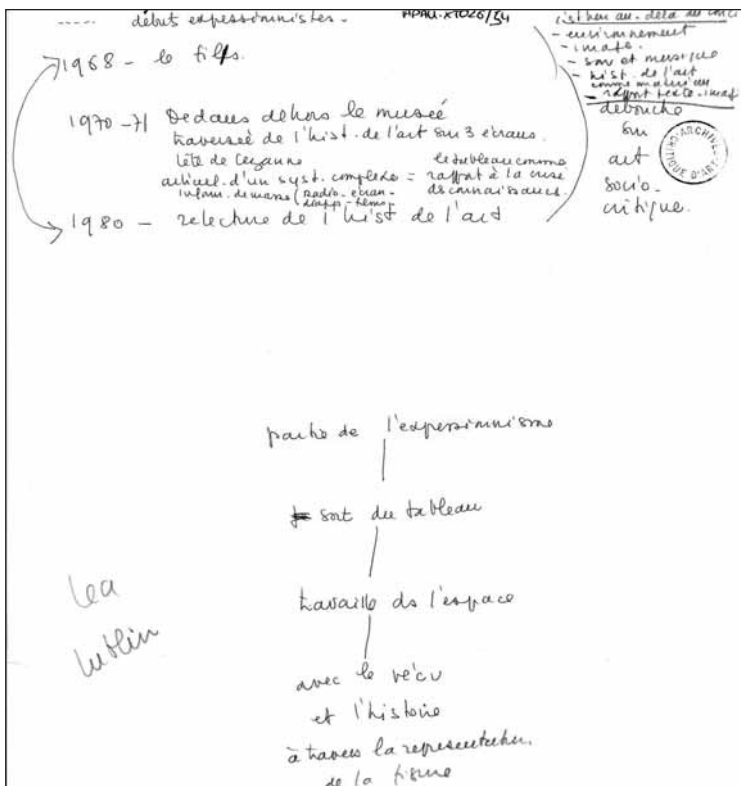 ..... début expressionnistes.
APALI.XT026/54
- environnement
- image.
- son et musique
- hist. de l'art
comme matériau
- rapport texte-image
débouche
sur
art
socio-
critique.
ARCHIVES
CRITIQUE D'ART
1968 - le fils.
1970-71 Dedans dehors le musée
traversée de l'hist. de l'art sur 3 écrans.
tête de Cezanne
le tableau comme
articul. d'un syst. complexe = rapport à la crise
inform. de masse (radio-écran-
diapo-
ds connaissances.
1980 - relecture de l'hist de l'art
partie de l'expressionnisme
sort du tableau
travaille ds l'espace
avec le vécu
et l'histoire
à travers la representation
de la figure
Lea
Lublin